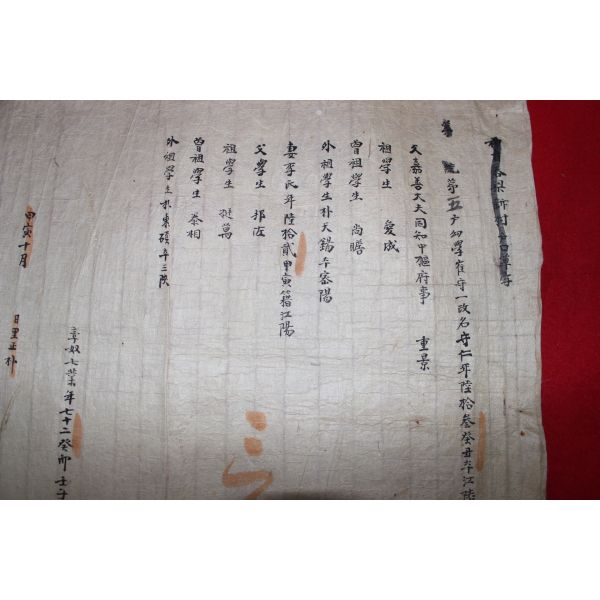 第五戶幼學崔守一改名守仁年陸拾叁癸丑本江陵
父嘉善大夫同知中樞府事 重景
祖學生 愛成
曾祖學生 尚瞻
外祖學生朴天錫本密陽
妻李氏年陸拾貳甲寅籍江陽
父學生 邦
祖學生 挺萬
曾祖學生 泰相
外祖學生朴東碩本三陟
率奴七業年七十二癸卯 壬子
甲寅十月 日里正朴